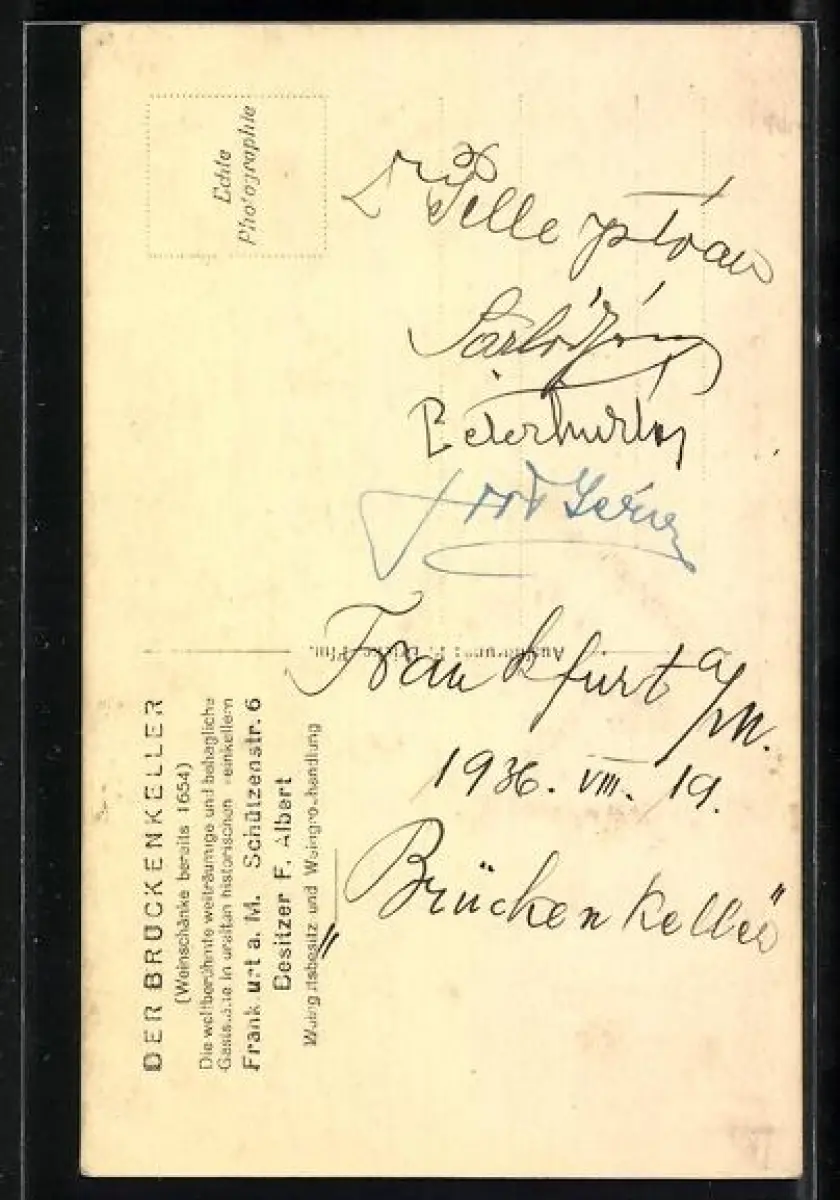 Echte
Photographie
Dr Pelle István
Sarló János
Péter
Frankfurt a/M.
1936. VIII. 19.
„Brückenkeller"
DER BRÜCKENKELLER
(Weinschänke bereits 1654)
Die weltberühmte weiträumige und behagliche
Gaststätte in uralten historischen Weinkellern
Frankfurt a. M. Schützenstr. 6
Besitzer F. Albert
Weingutsbesitz und Weingrosshandlung